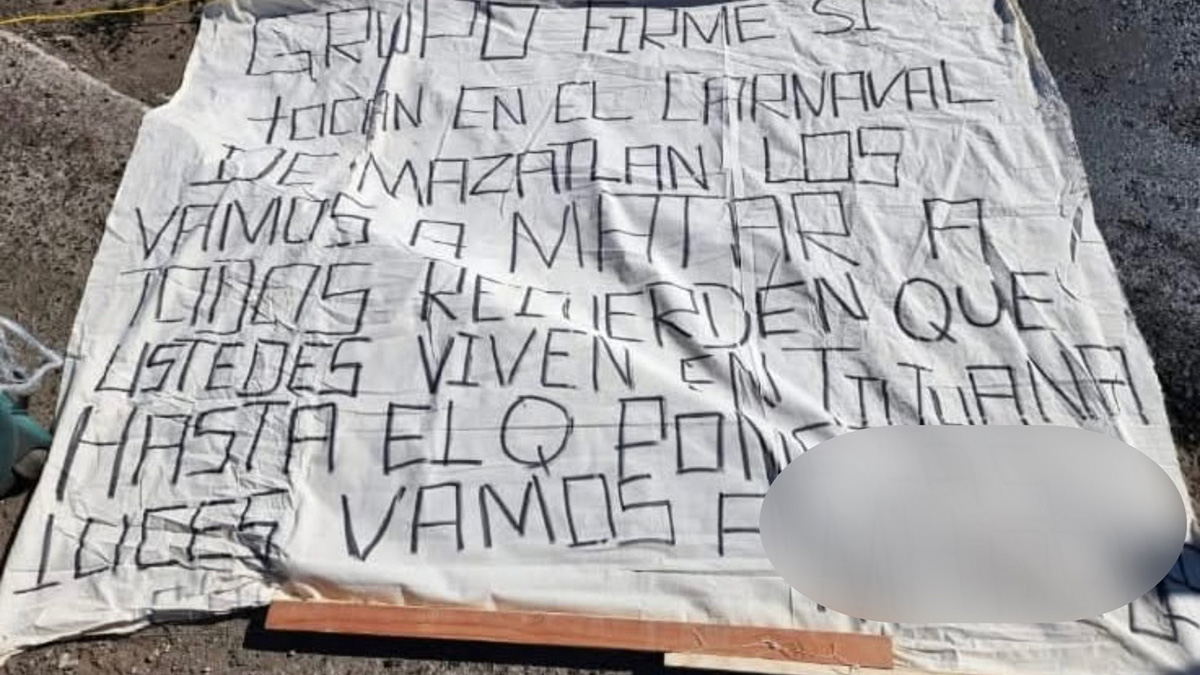 GRUPO FIRME SI
tOCAN EN EL CARNAVAL
DE MAZATLAN LOS
VAMOS A MATAR A
TODOS RECUERDEN QUE
USTEDES VIVEN EN TIJUANA
HASTA EL Q PONE
LUCES VAMOS A